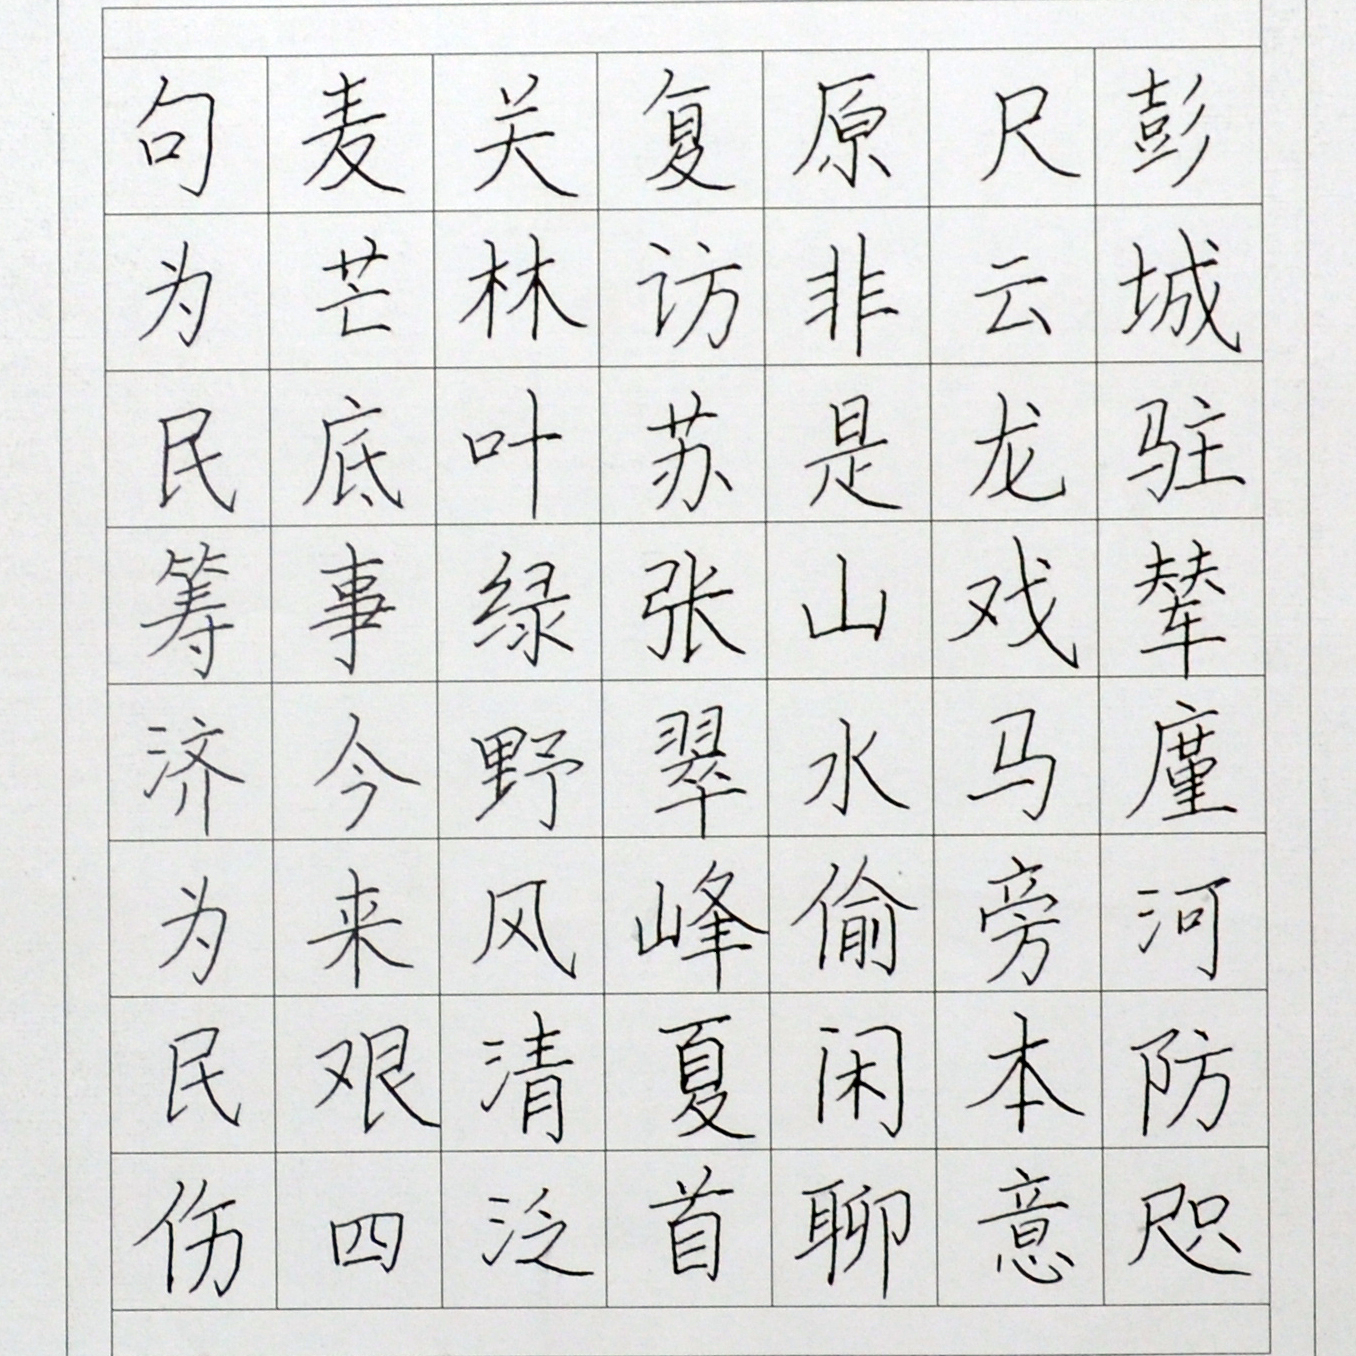 彭城驻辇廑河防咫
尺云龙戏马旁本意
原非是山水偷闲聊
复访苏张翠峰夏首
关林叶绿野风清泛
麦芒底事今来艰四
句为民筹济为民伤